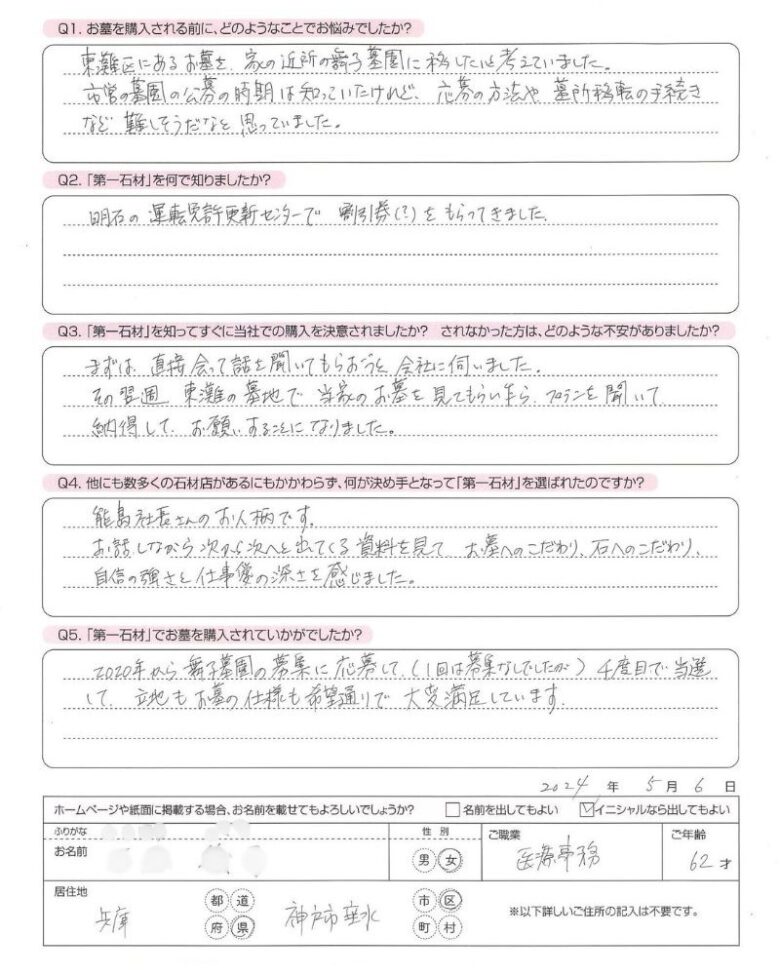 Q1. お墓を購入される前に、どのようなことでお悩みでしたか?
東灘区にあるお墓を、家の近所の舞子墓園に移したいと考えていました。
市営の墓園の公募の時期は知っていたけれど、応募の方法や、墓所移転の手続き
など難しそうだなと思っていました。
Q2. 「第一石材」を何で知りましたか?
明石の運転免許更新センターで 割引券(?)をもらってきました。
Q3. 「第一石材」を知ってすぐに当社での購入を決意されましたか? されなかった方は、どのような不安がありましたか?
まずは、直接会って話を聞いてもらおうと、会社に伺いました。
その翌週、東灘の墓地で、当家のお墓を見てもらいながら、プランを聞いて
納得して、お願いすることになりました。
Q4. 他にも数多くの石材店があるにもかかわらず、何が決め手となって「第一石材」を選ばれたのですか?
能島社長さんのお人柄です。
お話しながら次から次へと出てくる資料を見て、お墓へのこだわり、石へのこだわり、
自信の強さと仕事優の深さを感じました。
Q5. 「第一石材」でお墓を購入されていかがでしたか?
2020年から舞子墓園の募集に応募して、(1回は募集なしでしたが) 4度目で当選
して、立地もお墓の仕様も希望通りで 大変満足しています。
2024 年 5 月 6 日
ホームページや紙面に掲載する場合、お名前を載せてもよろしいでしょうか? 名前を出してもよい イニシャルなら出してもよい
ふりがな 性別 ご職業 ご年齢
お名前 男 女 医療事務 62 才
居住地 都 道 市 区
兵庫 府 県 神戸市垂水 町 村 ※以下詳しいご住所の記入は不要です。